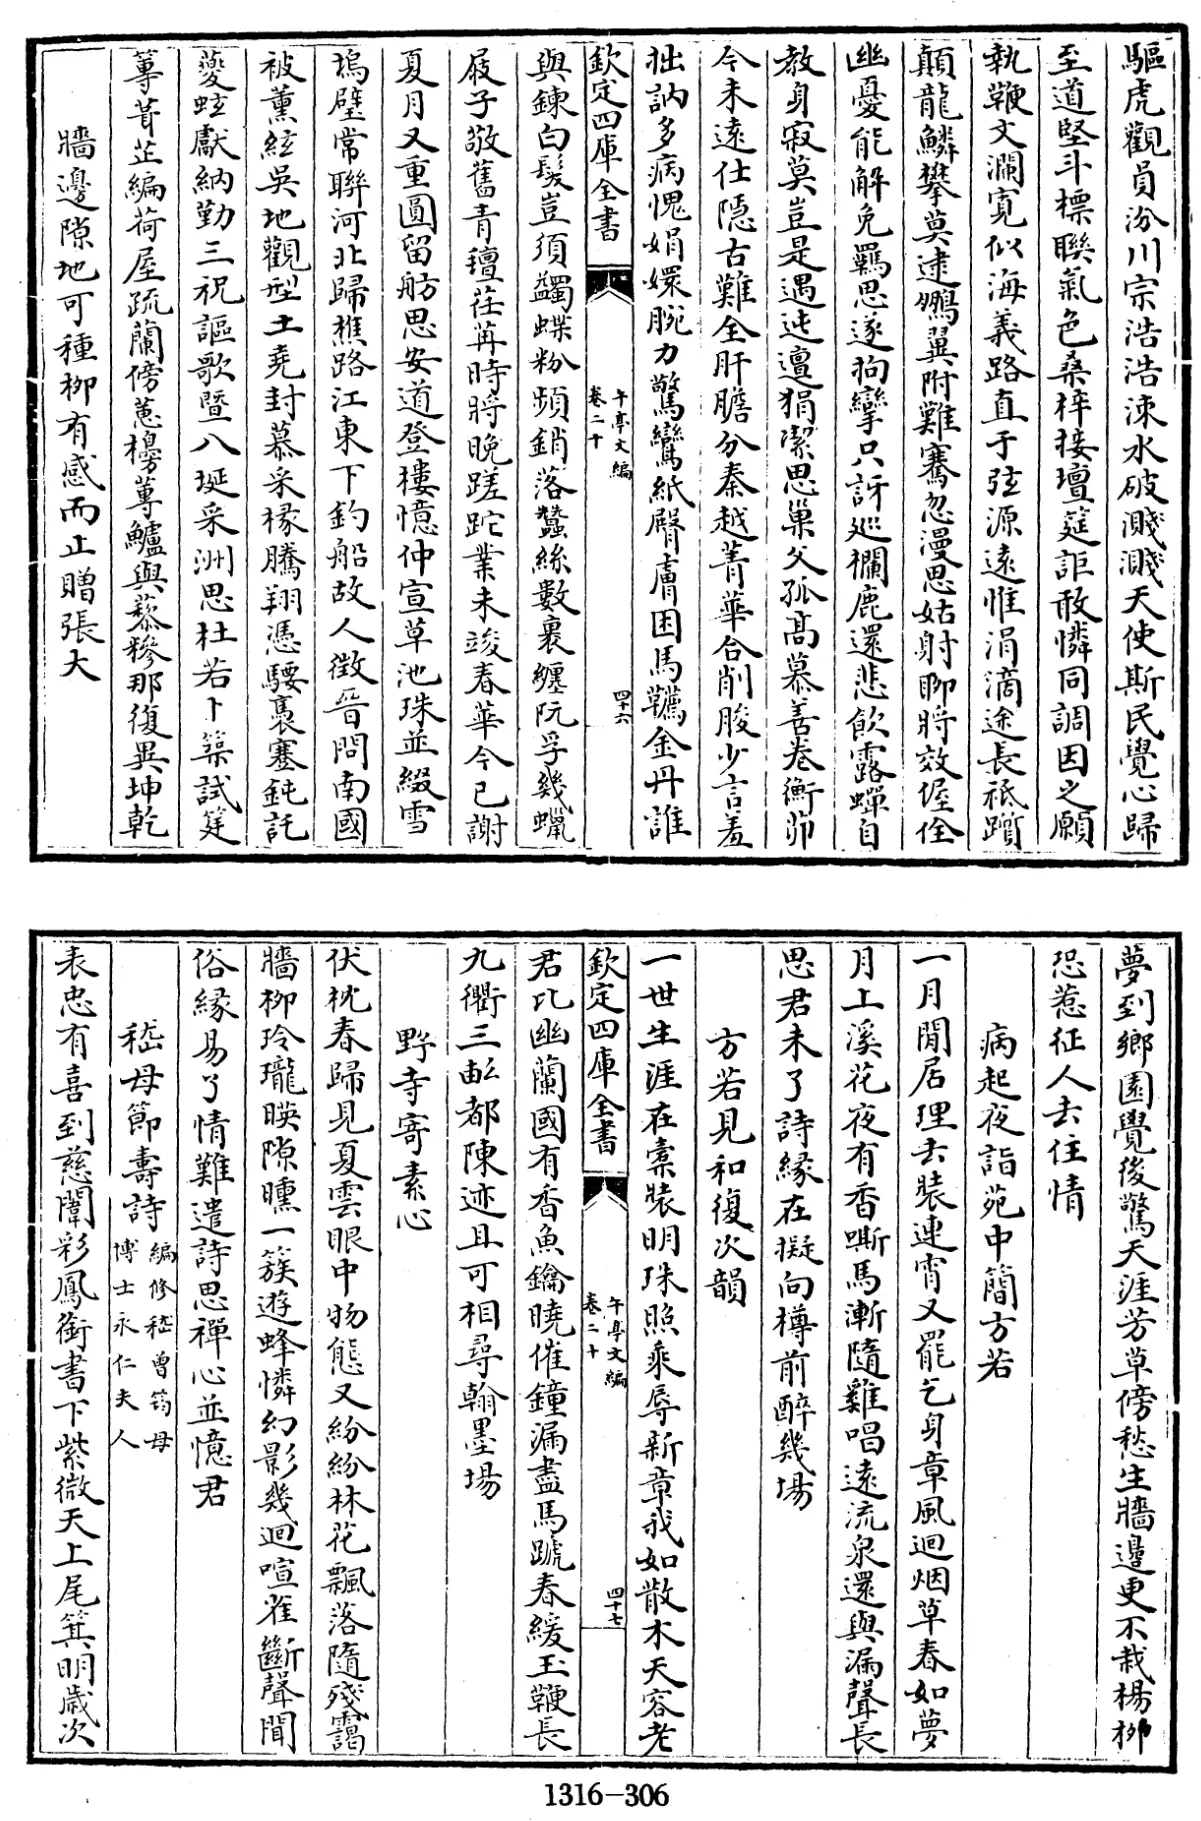 驅虎觀員汾川宗浩浩涑水破濺濺天使斯民覺心歸
至道堅斗標聯氣色桑梓接壇筵詎敢憐同調因之願
執鞭文瀾寛似海義路直于弦源遠惟涓滴途長祗躓
顛龍鱗攀莫逮鷃翼附難騫忽漫思姑射聊將效偓佺
幽憂能解免羈思遂拘攣只訝廵欄鹿還悲飲露蟬自
教身寂莫豈是遇迍邅狷潔思巢父孤高慕善卷衡茆
今未遠仕隱古難全肝膽分秦越菁華合削朘少言羞
拙訥多病愧娟嬛腕力驚鸞紙臀膚困馬韉金丹誰
欽定四庫全書
午亭文編
卷二十
四十六
與鍊白髮豈須蠲蝶粉頻銷落蠶絲數裹纏阮孚幾蠟
屐子敬舊青氊荏苒時將晚蹉跎業未竣春華今已謝
夏月又重圓留舫思安道登樓憶仲宣草池珠並綴雪
塢璧常聯河北歸樵路江東下釣船故人徵晉問南國
被薰絃吳地觀型土堯封慕采椽騰翔憑騕褭蹇鈍託
夔蚿獻納勤三祝謳歌曁八埏采洲思杜若卜築試筳
篿葺芷編荷屋疏蘭傍蕙櫋蓴鱸與藜糝那復異坤乾
牆邊隙地可種栁有感而止贈張大
夢到鄉園覺後驚天涯芳草傍愁生牆邊更不栽楊栁
恐惹征人去住情
病起夜詣苑中簡方若
一月閒居理去裝連宵又罷乞身章風迴烟草春如夢
月上溪花夜有香嘶馬漸隨雞唱遠流泉還與漏聲長
思君未了詩緣在擬向樽前醉幾場
方若見和復次韻
一世生涯在槖裝明珠照乘辱新章我如散木天容老
欽定四庫全書
午亭文編
卷二十
四十七
君比幽蘭國有香魚鑰曉催鐘漏盡馬蹏春緩玉鞭長
九衢三畝都陳迹且可相尋翰墨場
野寺寄素心
伏枕春歸見夏雲眼中物態又紛紛林花飄落隨殘靄
牆栁玲瓏暎隙曛一簇遊蜂憐幻影幾迴喧雀斷聲聞
俗緣易了情難遣詩思禪心並憶君
嵇母節壽詩編修嵇曾筠母博士永仁夫人
表忠有喜到慈闈彩鳳銜書下紫微天上尾箕明歲次
1316-306